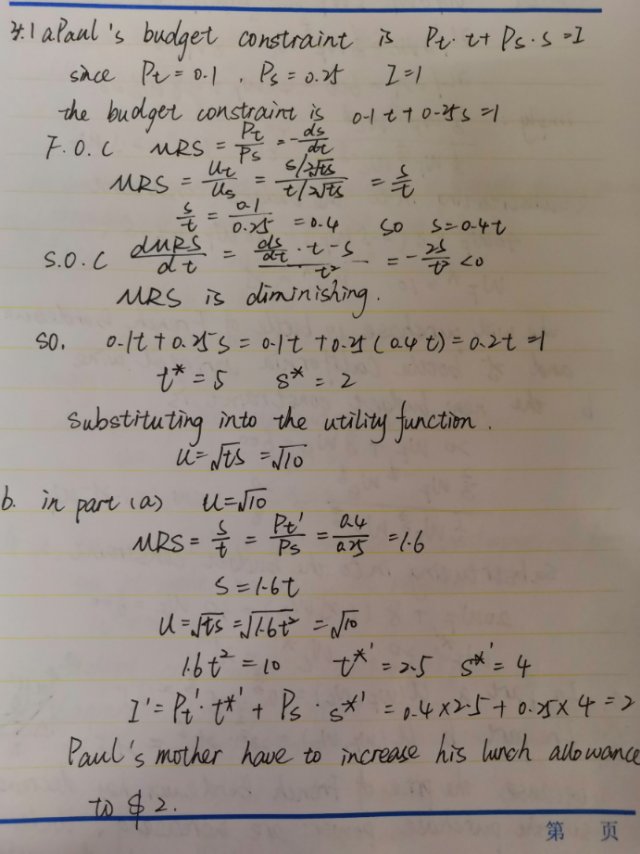 4.1 a. Paul's budget constraint is Pt·t + Ps·s = I
since Pt = 0.1 , Ps = 0.25 I = 1
the budget constraint is 0.1t + 0.25s = 1
F.O.C MRS = Pt/Ps = -ds/dt
MRS = Ut/Us = (s/2√ts)/(t/2√ts) = s/t
s/t = 0.1/0.25 = 0.4 so s = 0.4t
S.O.C dMRS/dt = (ds/dt · t - s)/t² = -2s/t² < 0
MRS is diminishing.
SO. 0.1t + 0.25s = 0.1t + 0.25(0.4t) = 0.2t = 1
t* = 5 s* = 2
Substituting into the utility function.
U = √ts = √10
b. in part (a) U = √10
MRS = s/t = Pt'/Ps = 0.4/0.25 = 1.6
s = 1.6t
U = √ts = √1.6t² = √10
1.6t² = 10 t*' = 2.5 s*' = 4
I' = Pt'·t*' + Ps·s*' = 0.4×2.5 + 0.25×4 = 2
Paul's mother have to increase his lunch allowance
to $2.
第 页